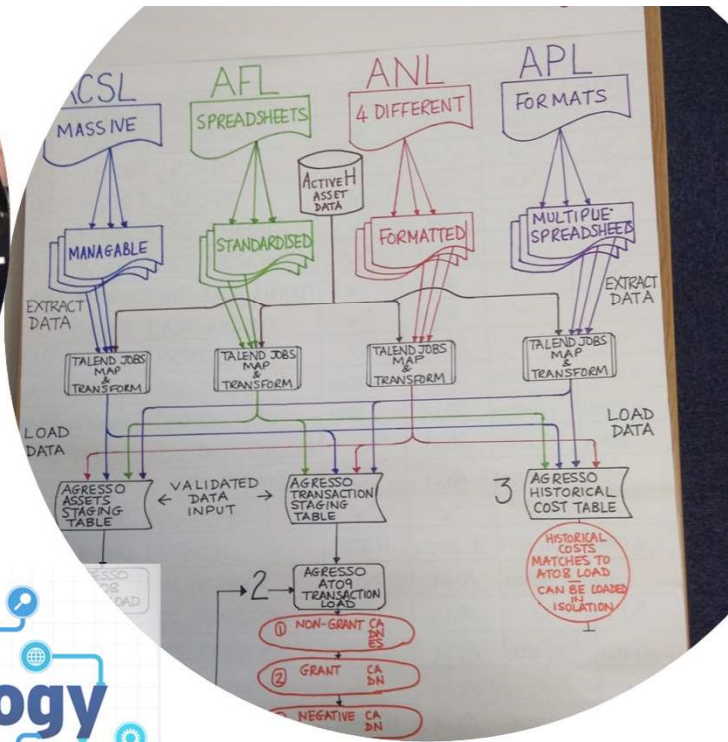 ACSL
AFL
ANL
APL
MASSIVE
SPREADSHEETS
4 DIFFERENT
FORMATS
ACTIVEH
ASSET
DATA
MANAGABLE
STANDARDISED
FORMATTED
MULTIPLE
SPREADSHEETS
EXTRACT
DATA
EXTRACT
DATA
TALEND JOBS
MAP
&
TRANSFORM
TALEND JOBS
MAP
&
TRANSFORM
TALEND JOBS
MAP
&
TRANSFORM
TALEND JOBS
MAP
&
TRANSFORM
LOAD
DATA
LOAD
DATA
AGRESSO
ASSETS
STAGING
TABLE
← VALIDATED →
DATA
INPUT
AGRESSO
TRANSACTION
STAGING
TABLE
3
AGRESSO
HISTORICAL
COST TABLE
HISTORICAL
COSTS
MATCHES TO
AT08 LOAD
—
CAN BE LOADED
IN
ISOLATION
2
AGRESSO
AT09
TRANSACTION
LOAD
① NON-GRANT CA
DN
ES
② GRANT CA
DN
NEGATIVE CA
DN
ogy